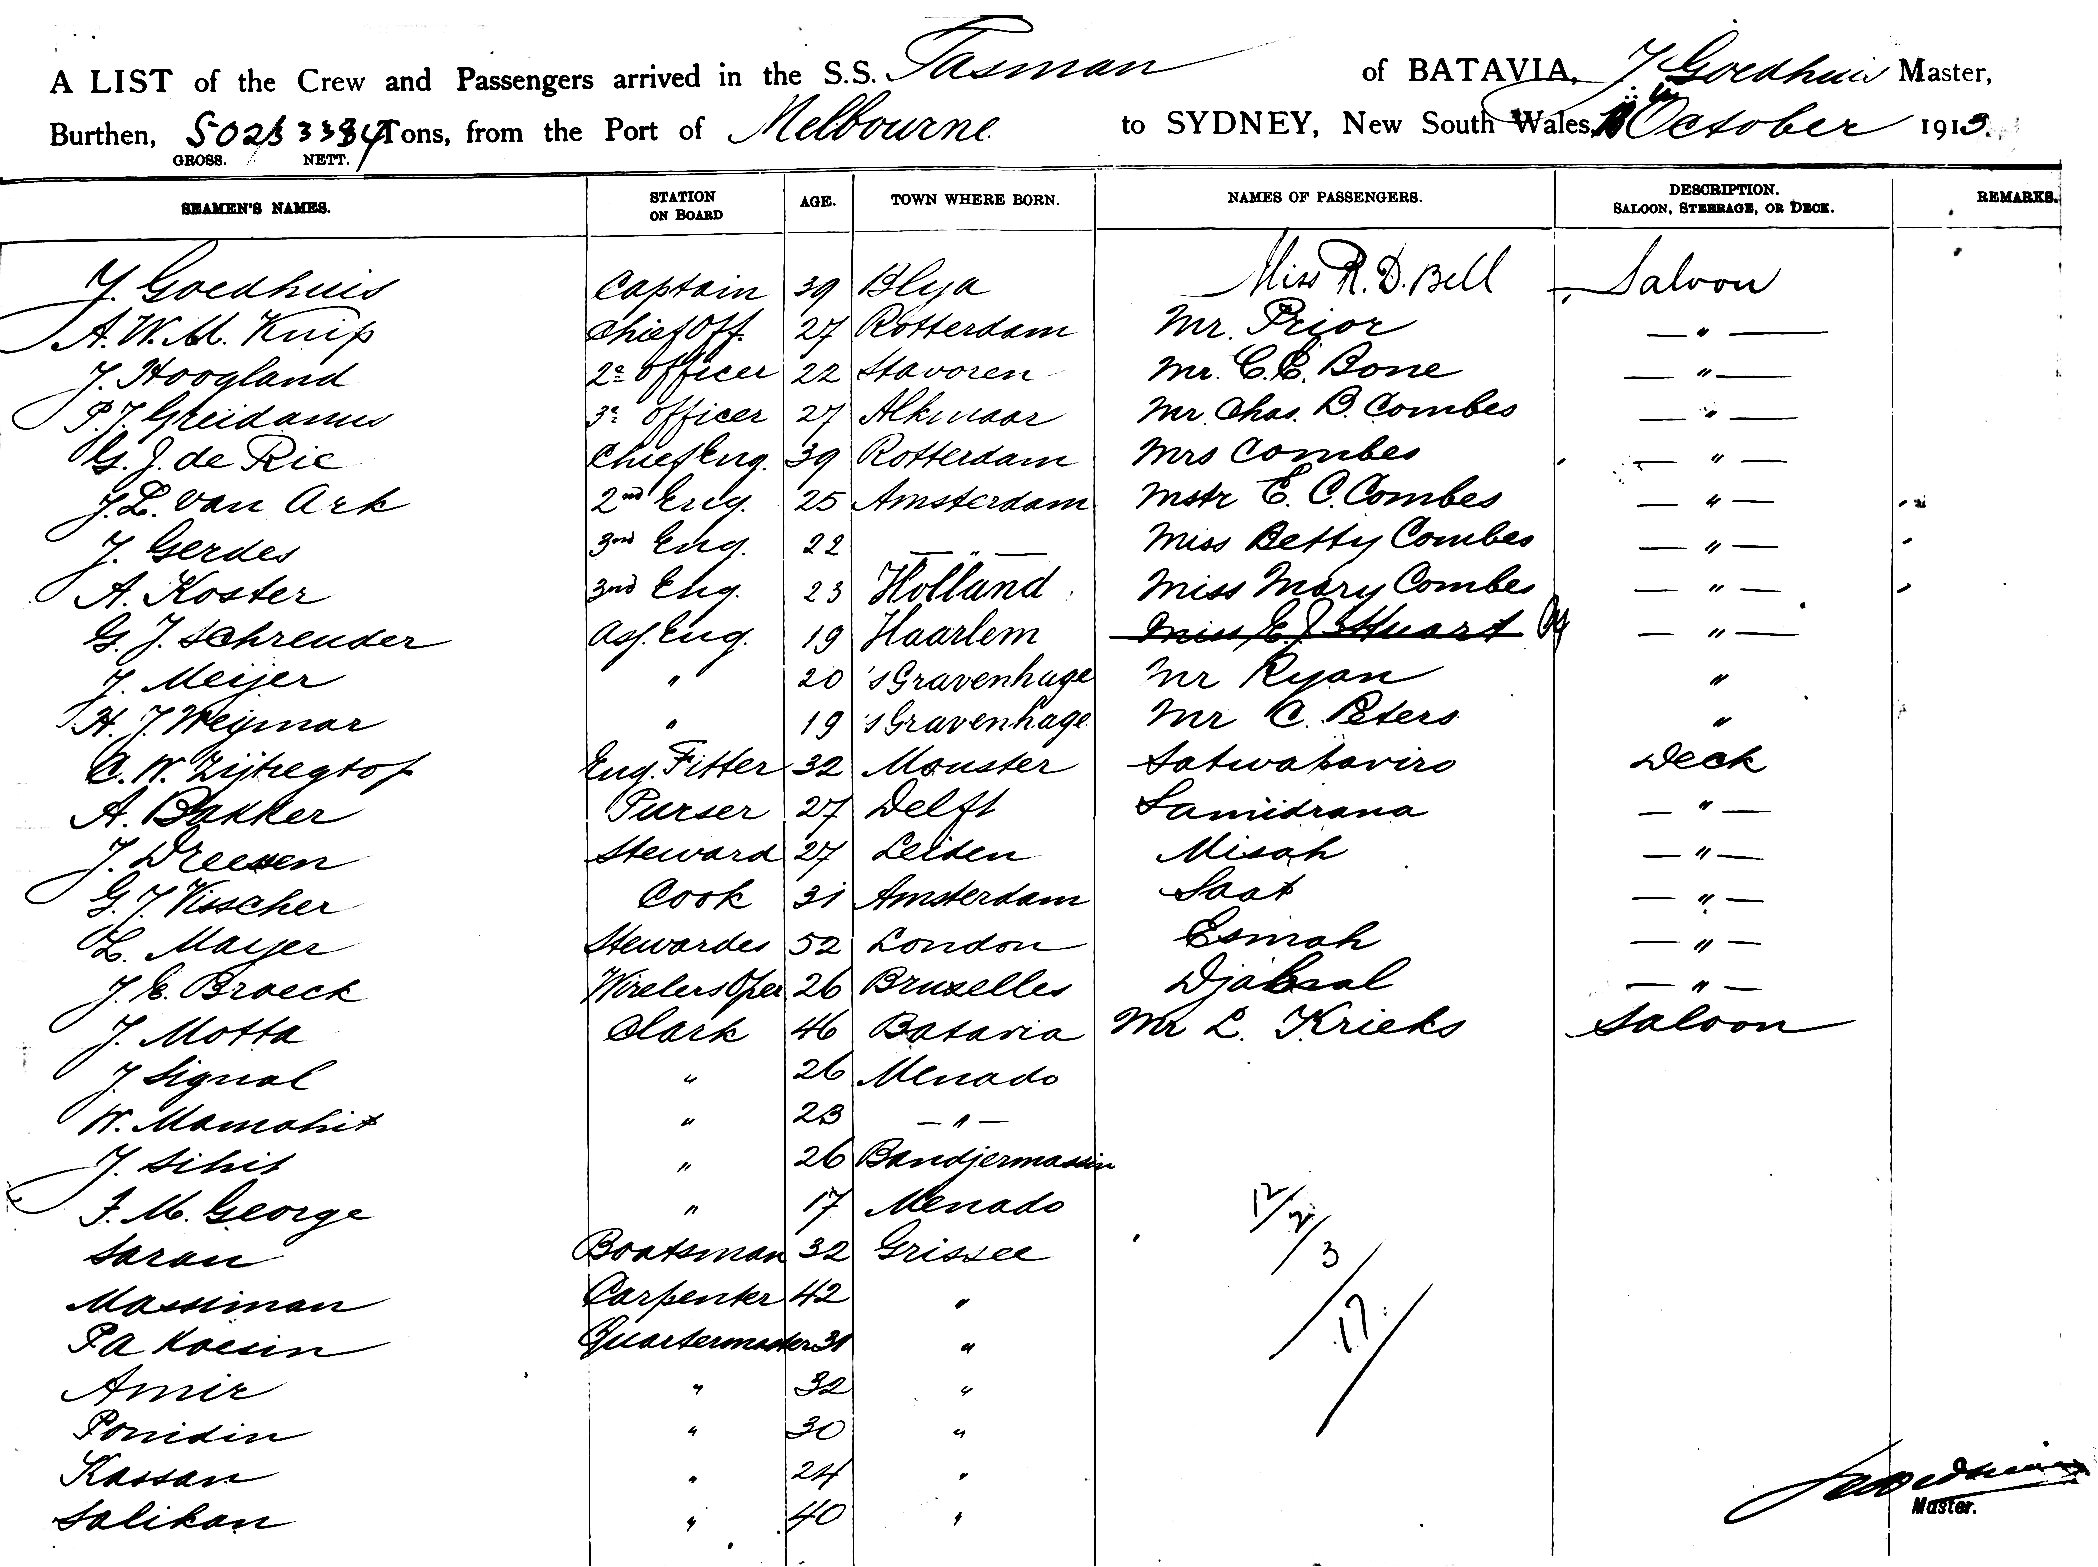 A LIST of the Crew and Passengers arrived in the S.S. Tasman of BATAVIA, J Goedhuis Master,
Burthen, 5023 3384 Tons, from the Port of Melbourne to SYDNEY, New South Wales, October 1913.
GROSS. NETT.
SEAMEN'S NAMES. STATION ON BOARD AGE. TOWN WHERE BORN. NAMES OF PASSENGERS. DESCRIPTION. SALOON, STEERAGE, OR DECK. REMARKS.
J. Goedhuis Captain 39 Blya Miss R. D. Bell Saloon
A. W. M. Knip Chief Off. 27 Rotterdam Mr. Prior — " —
J. Hoogland 2e officer 22 Stavoren Mr. C. E. Bone — " —
P. J. Greidanus 3e officer 27 Alkmaar Mr Chas. B. Combes — " —
G. J. de Rie Chief Eng. 39 Rotterdam Mrs Combes — " —
J. L. van Ark 2nd Eng. 25 Amsterdam Mstr E. C. Combes — " —
J. Gerdes 3nd Eng. 22 — " — Miss Betty Combes — " —
A. Koster 3nd Eng. 23 Holland Miss Mary Combes — " —
G. J. Schreuder Ass. Eng. 19 Haarlem Miss E. J. Stuart — " —
J. Meijer " 20 's Gravenhage Mr Ryan "
H. J. Weymar " 19 's Gravenhage Mr C. Peters "
C. W. Zijtregtop Eng. Fitter 32 Monster Satwataviro Deck
A. Bakker Purser 27 Delft Samidrana — " —
J. Dreesen Steward 27 Leiden Misah — " —
G. J. Visscher Cook 31 Amsterdam Saat — " —
L. Mayer Stewardes 52 London Esmah — " —
J. E. Broeck Wirelers Oper 26 Bruxelles Djabral — " —
J. Motta Clark 46 Batavia Mr L. Krieks Saloon
J. Signal " 26 Menado
W. Mamahit " 23 — " —
J. Sihit " 26 Bandjermassin
F. M. George " 17 Menado
Saran Boatsman 32 Grissee
Massiman Carpenter 42 "
Pa Kaesin Quartermaster 31 "
Amir " 32 "
Ponidin " 30 "
Kassan " 24 "
Salikan " 40 "
12/2/3
/17/
Goedhuis
Master.